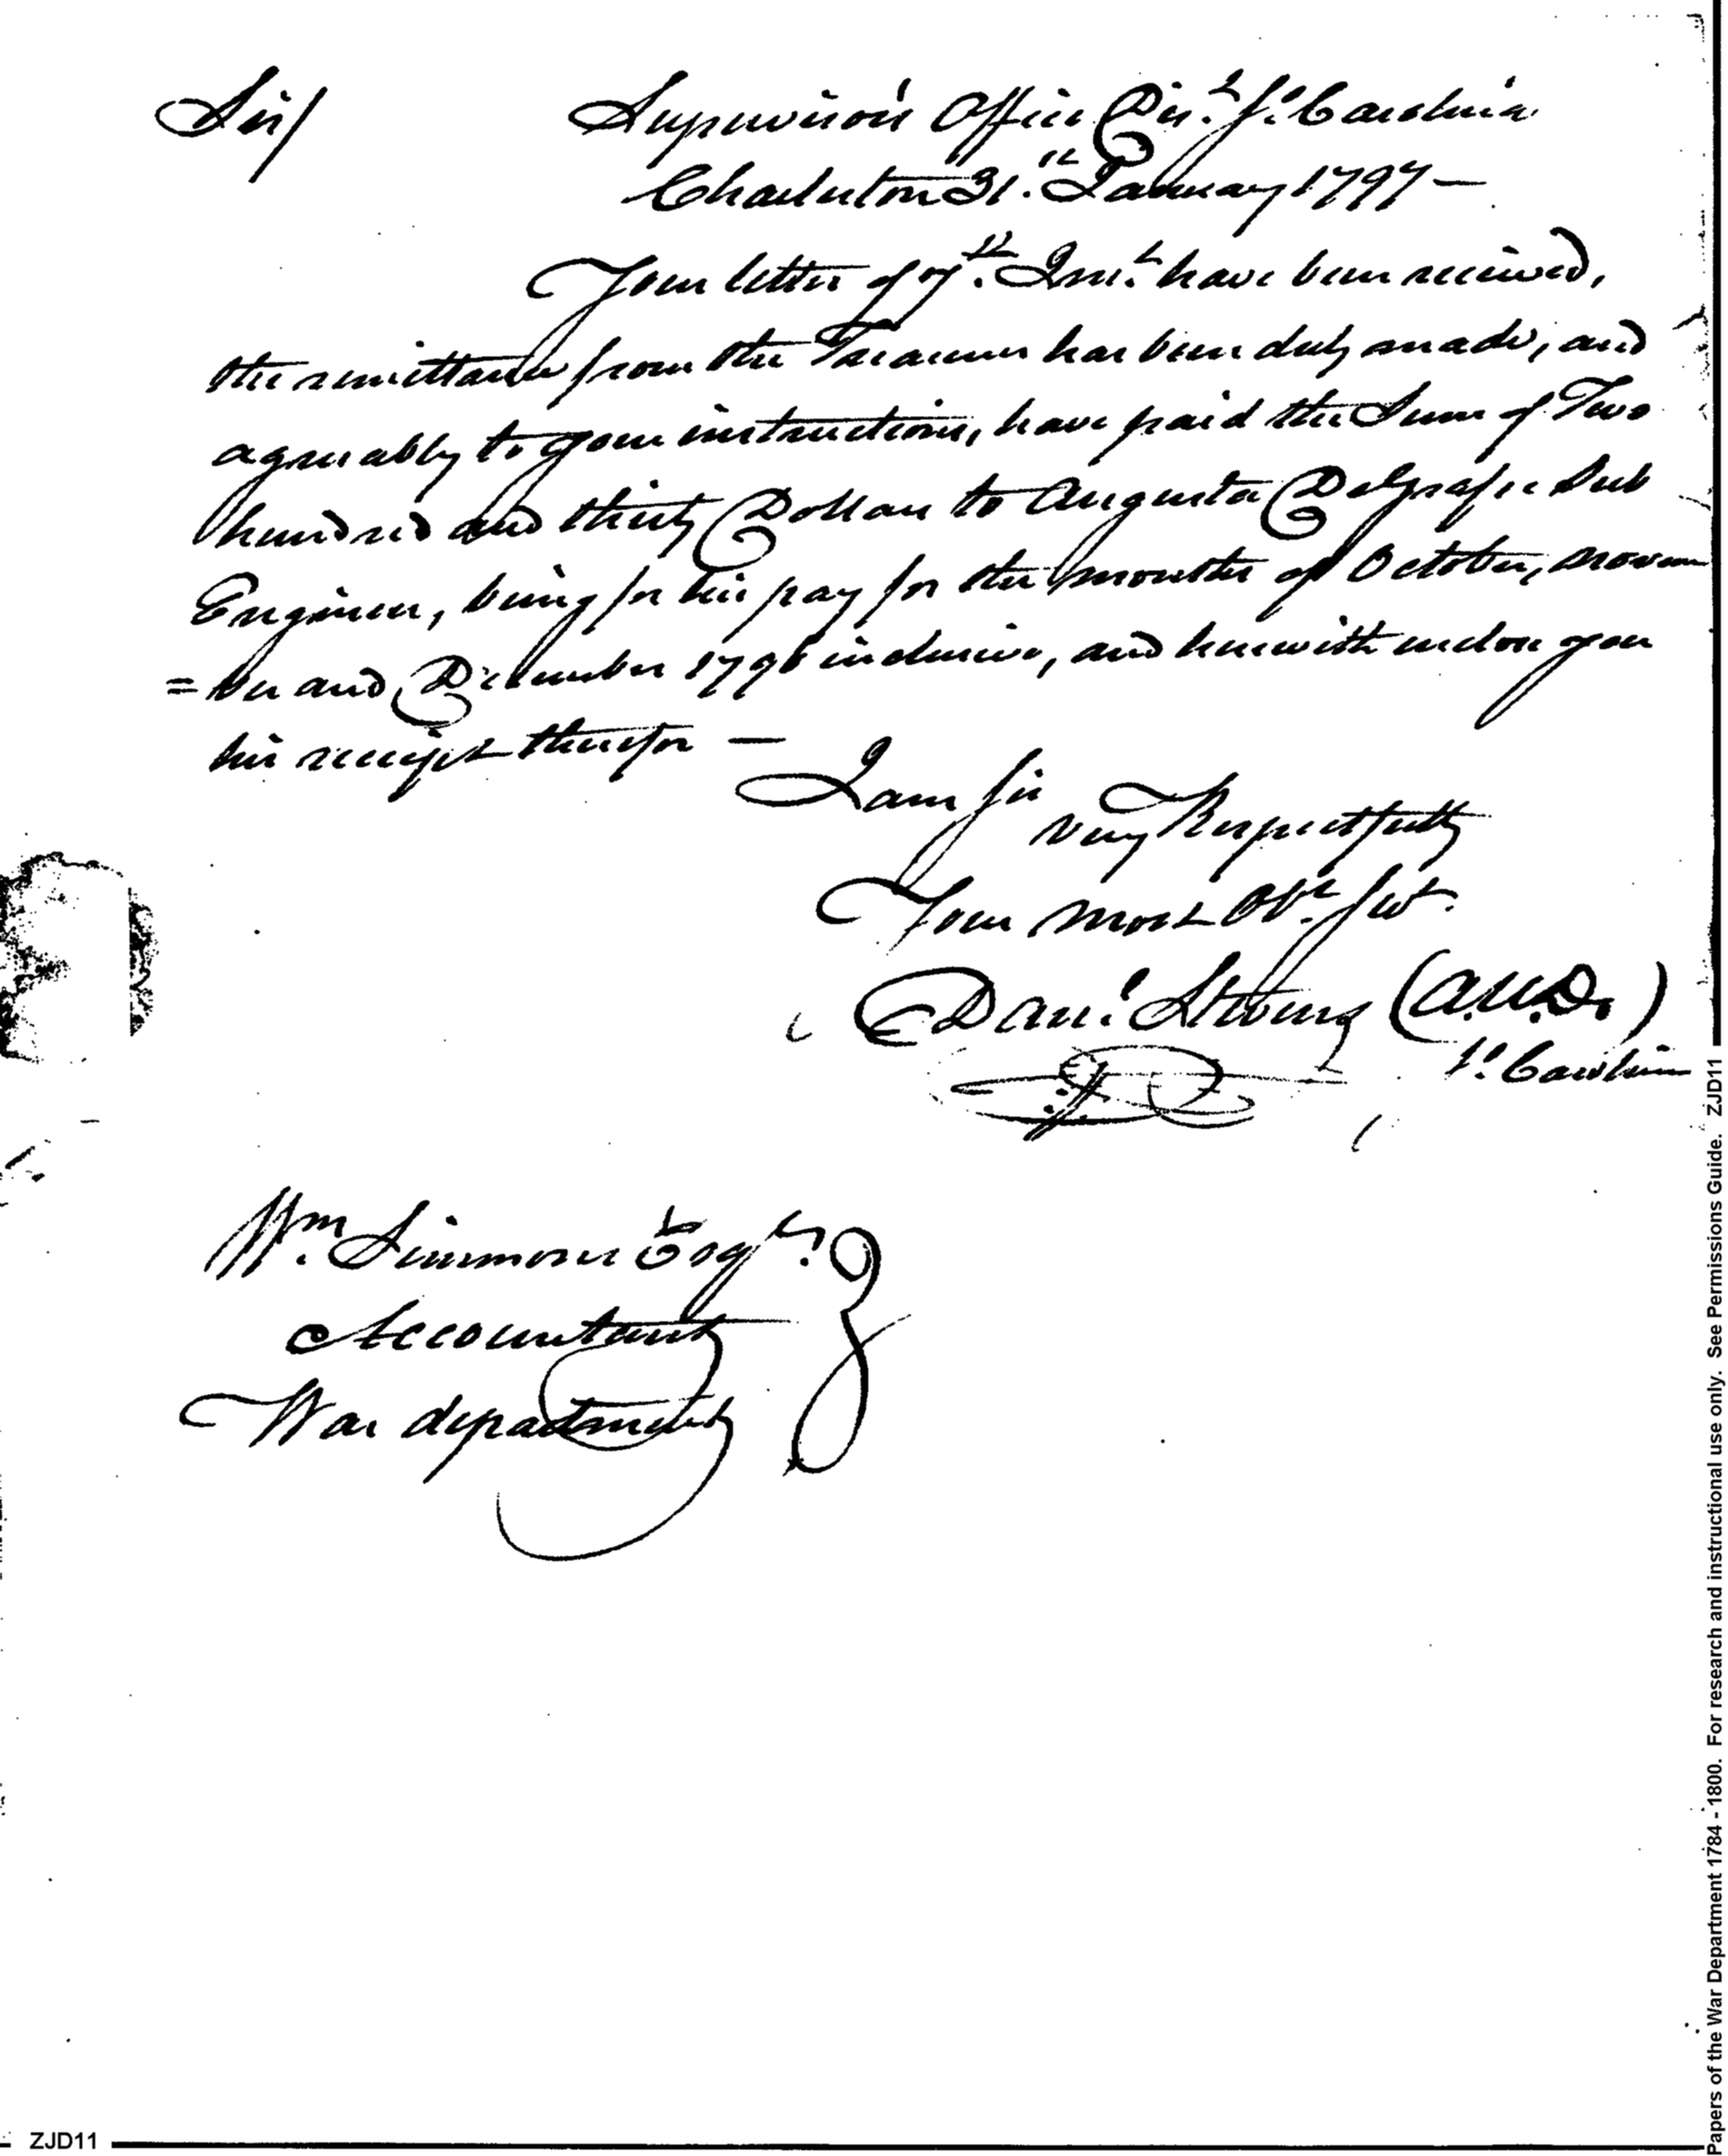 Sir/ Supervisor's Office Dist. So. Carolina
Charleston 31.st January 1797 —
Your letter of 7.th Inst. have been received,
the remittance from the Treasurer has been duly made, and
agreeably to your instructions, have paid the Sum of Two
hundred and thirty Dollars to Augustus DeGrasse Sub
Engineer, being for his pay for the months of October, Novem
= ber and December 1796 inclusive, and herewith enclose you
his receipt therefor —
I am Sir
very Respectfully
Your most Obt. Servt.
Danl. Stevens (A.W.D.)
So. Carolina
Wm. Simmons Esqr.
Accountant
War department
ZJD11
Papers of the War Department 1784 - 1800. For research and instructional use only. See Permissions Guide. ZJD11